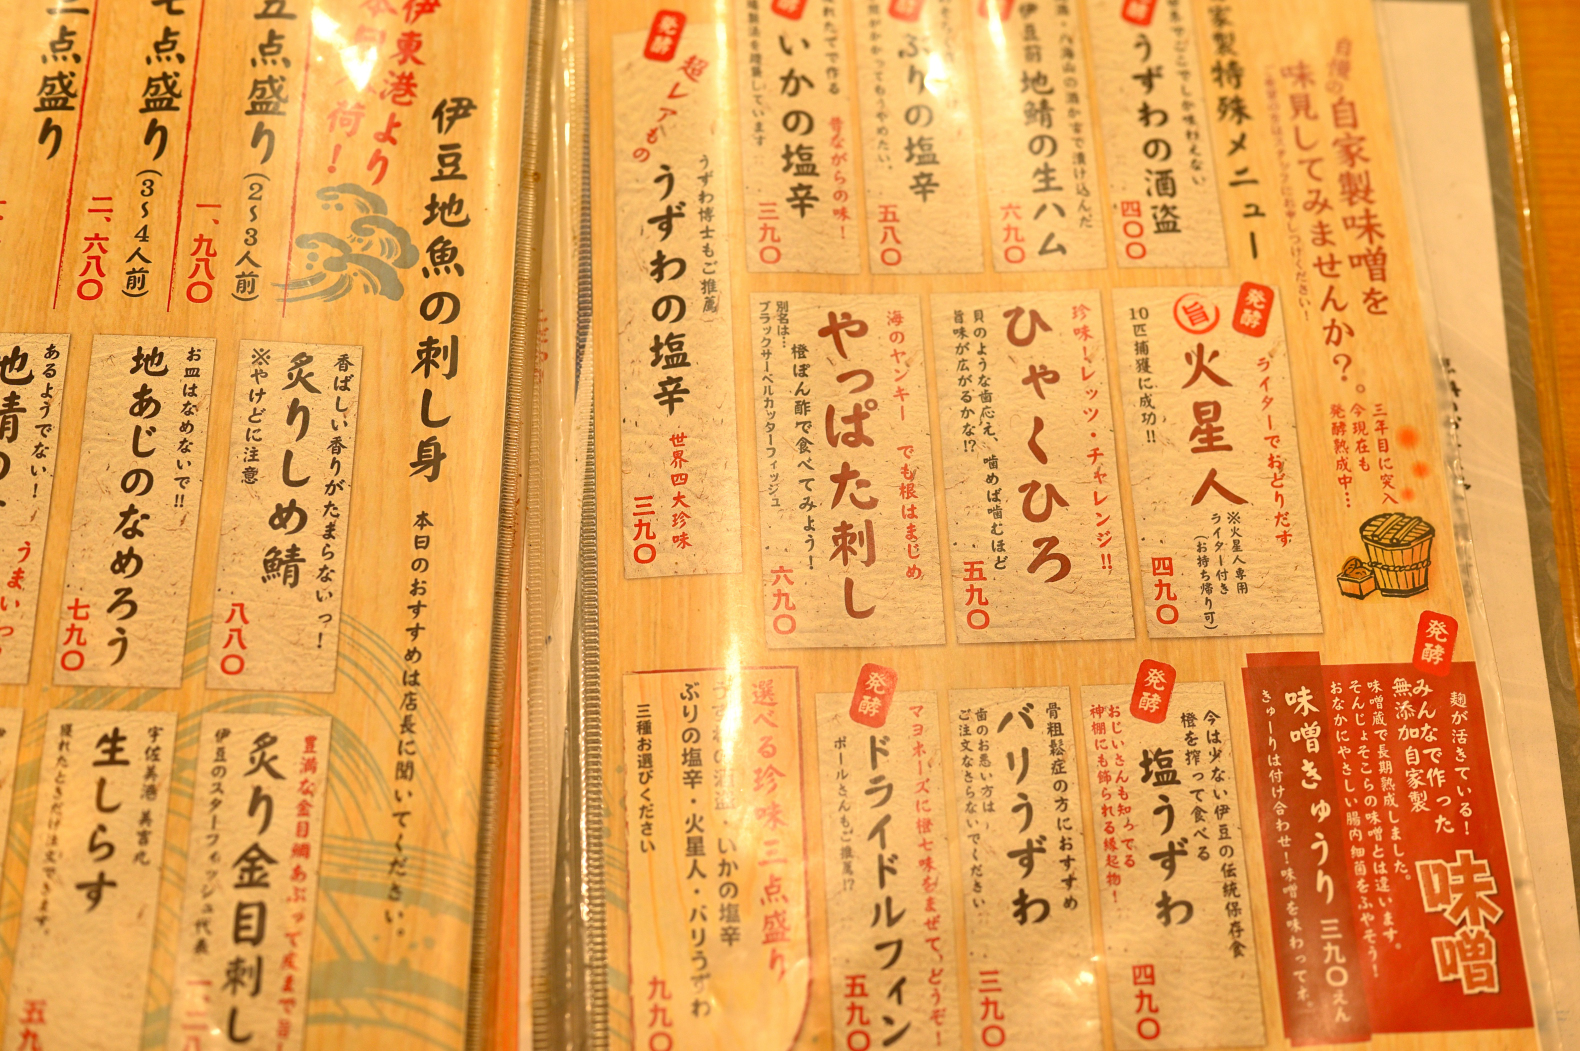 自慢の自家製味噌を
味見してみませんか?。
三年目に突入
今現在も
発酵熟成中…
自家製特殊メニュー
発酵
うずわの酒盗
四〇〇
伊豆前 地鯖の生ハム
六九〇
ぶりの塩辛
五八〇
いかの塩辛
昔ながらの味!
三九〇
発酵
超レアもの
うずわ博士もご推薦
うずわの塩辛
世界四大珍味
三九〇
発酵
ライターでおどりだす
旨
火星人
※火星人専用
ライター付き
(お持ち帰り可)
10匹捕獲に成功!!
四九〇
珍味！レッツ・チャレンジ!!
ひゃくひろ
貝のような歯応え、噛めば噛むほど
旨味が広がるかな!?
五九〇
海のヤンキー でも根はまじめ
やっぱた刺し
橙ぽん酢で食べてみよう!
別名は…
ブラックサーベルカッターフィッシュ
六九〇
発酵
麹が活きている!
みんなで作った
無添加自家製
味噌
味噌蔵で長期熟成しました。
そんじょそこらの味噌とは違います。
おなかにやさしい腸内細菌をふやそう!
味噌きゅうり 三九〇えん
きゅーりは付け合わせ!味噌を味わってネ。
発酵
今は少ない伊豆の伝統保存食
橙を搾って食べる
塩うずわ
おじいさんも知ってる
神棚にも飾られる縁起物!
四九〇
骨粗鬆症の方におすすめ
バリうずわ
歯のお悪い方は
ご注文なさらないでください
三九〇
発酵
マヨネーズに橙七味をまぜて、どうぞ!
ドライドルフィン
ポールさんもご推薦!?
五九〇
選べる珍味三点盛り
うずわの酒盗・いかの塩辛
ぶりの塩辛・火星人・バリうずわ
三種お選びください
九九〇
伊豆地魚の刺し身
本日のおすすめは店長に聞いてください。
伊東港より
五点盛り(2〜3人前)
一、九八〇
七点盛り(3〜4人前)
二、六八〇
点盛り
香ばしい香りがたまらないっ!
炙りしめ鯖
※やけどに注意
八八〇
お皿はなめないで!!
地あじのなめろう
七九〇
あるようでない!
地鯖の
うまいっ
豊満な金目鯛あぶって皮まで旨
炙り金目刺し
伊豆のスターフィッシュ代表
宇佐美港 美吉丸
生しらす
獲れたときだけ注文できます。
五九